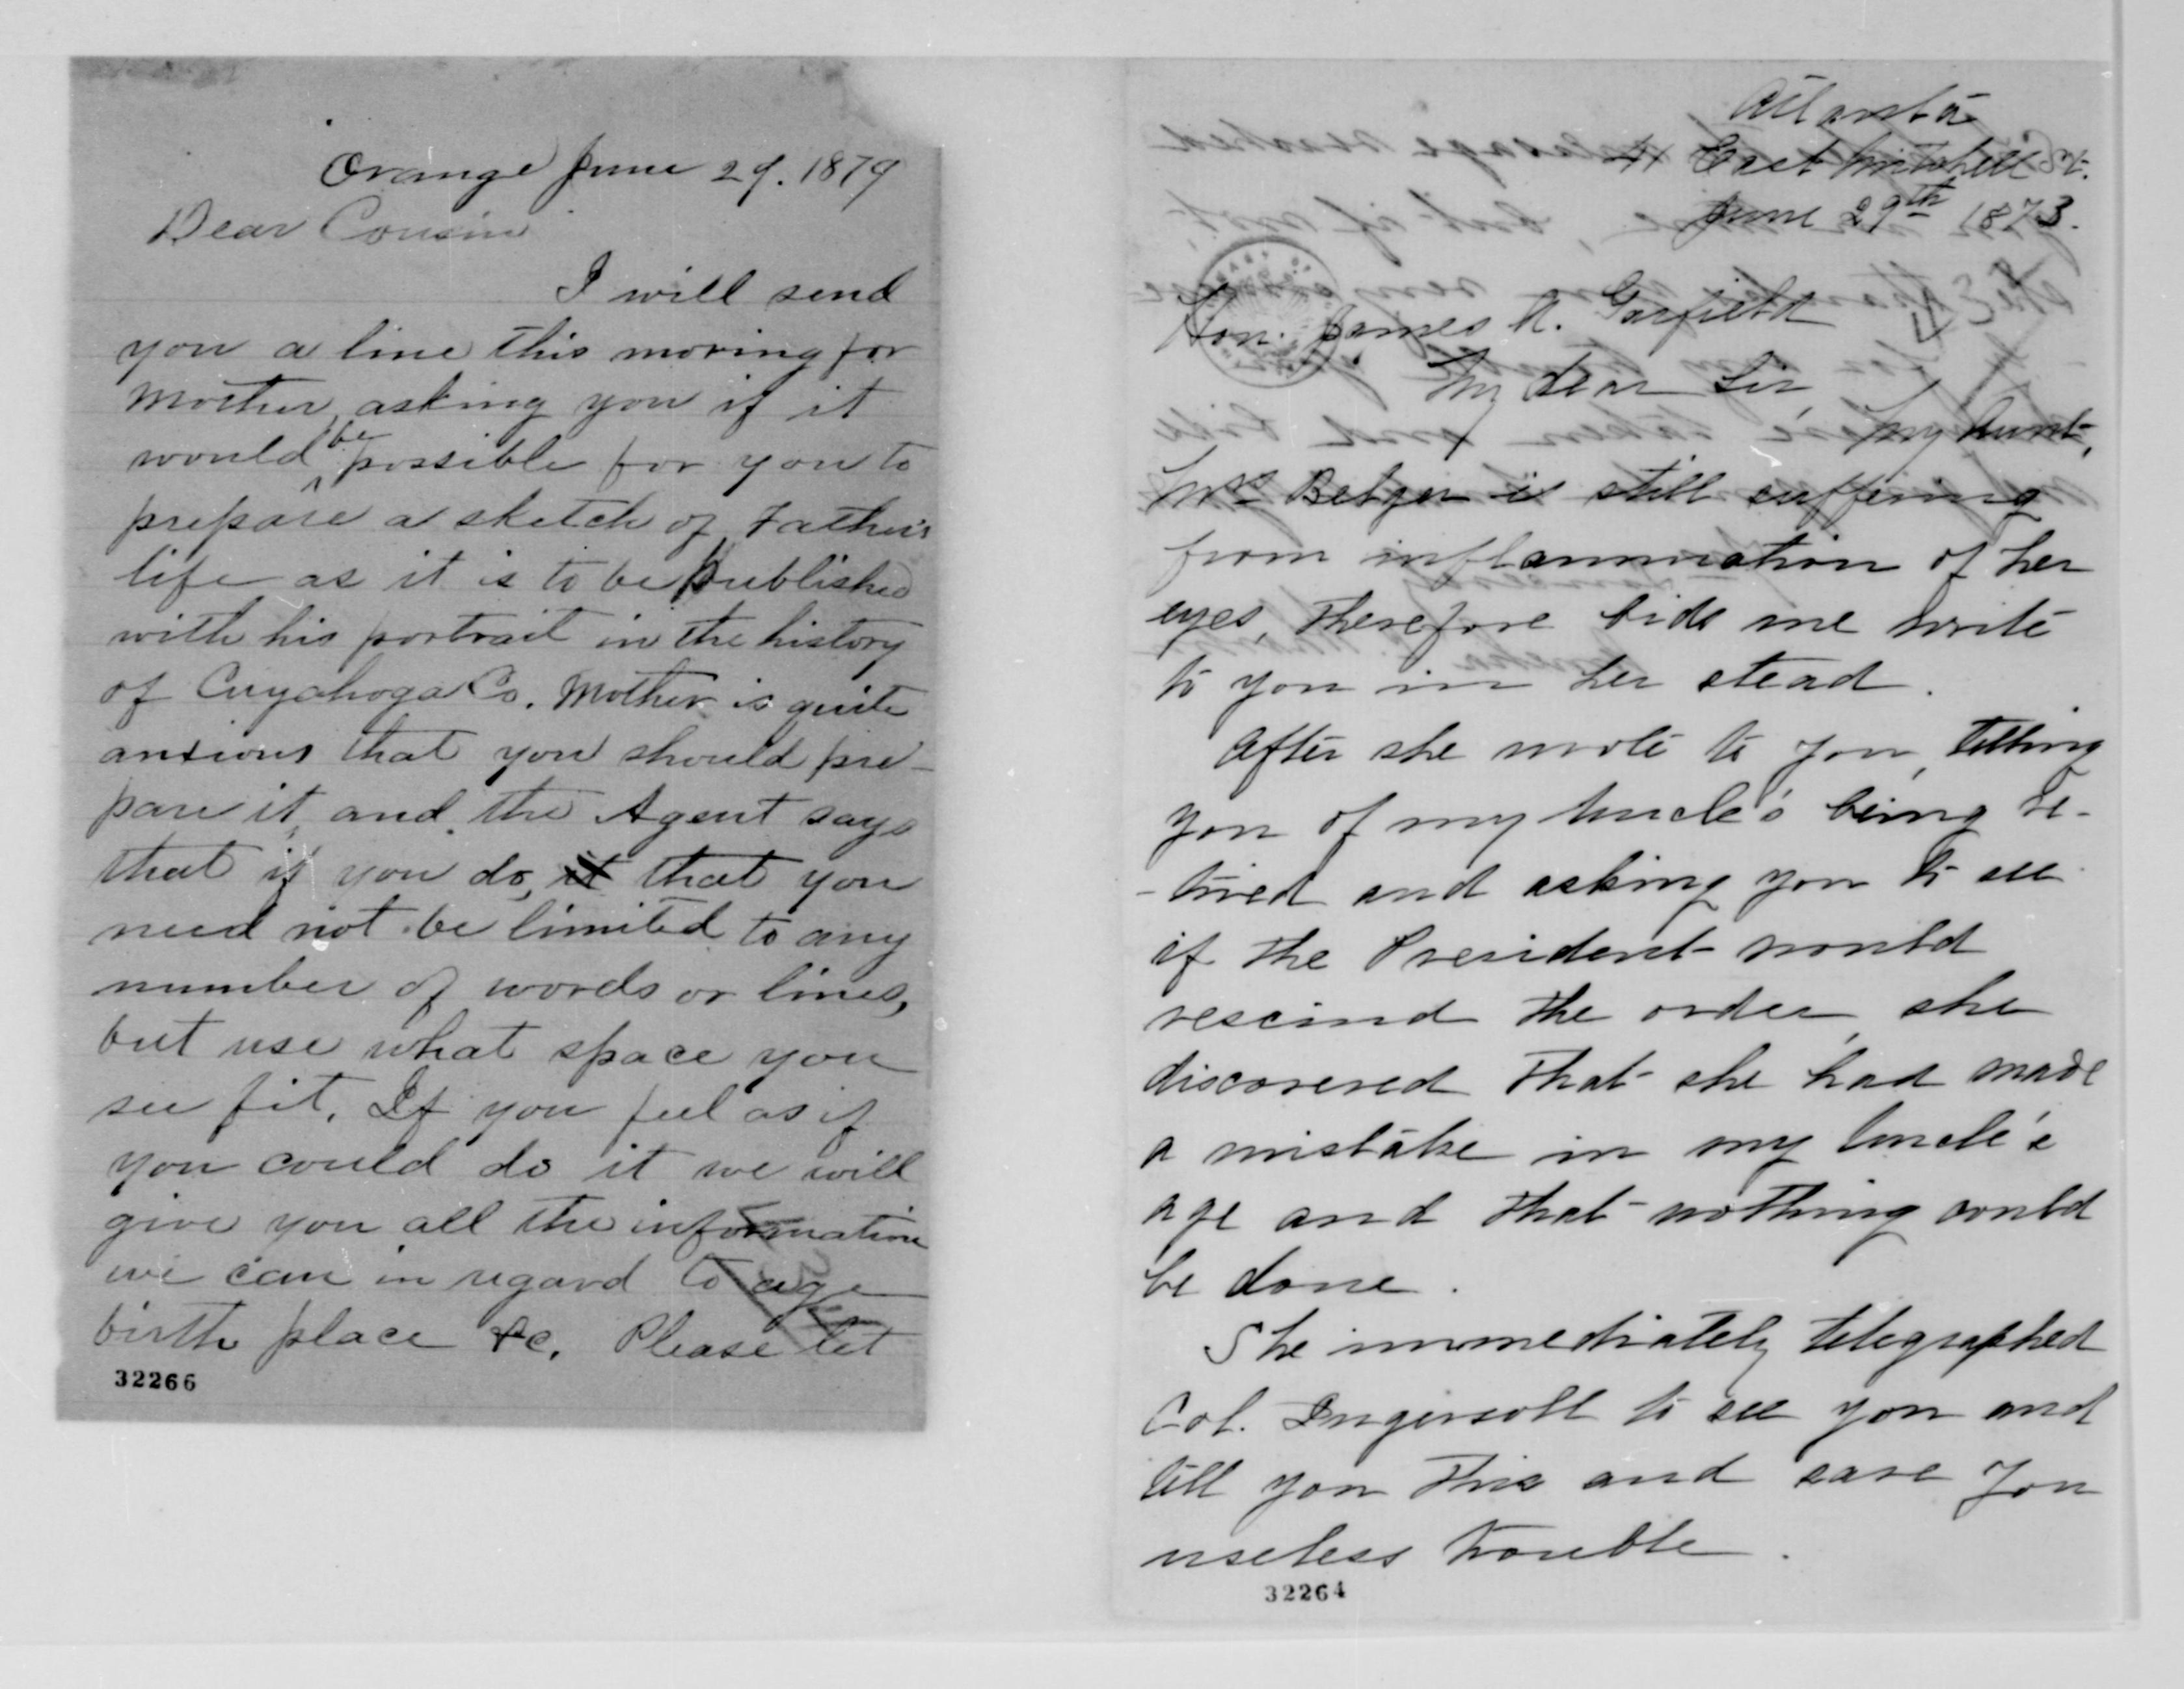 Orange June 29. 1879
Dear Cousin
I will send
you a line this moring for
Mother, asking you if it
would be possible for you to
prepare a sketch of Father's
life as it is to be published
with his portrait in the history
of Cuyahoga Co. Mother is quite
anxious that you should pre-
pare it, and the Agent says
that if you do, it that you
need not be limited to any
number of words or lines,
but use what space you
see fit. If you feel as if
you could do it we will
give you all the information
we can in regard to age
birth place &c. Please let
32266
Atlanta
East Mitchell St.
June 29th 1873.
Hon. James A. Garfield
My dear Sir,
My Aunt,
Mrs Belger is still suffering
from inflammation of her
eyes, therefore bids me write
to you in her stead.
After she wrote to you, telling
you of my Uncle's being re-
-tired and asking you to see
if the President would
rescind the order, she
discovered that she had made
a mistake in my Uncle's
age and that nothing could
be done.
She immediately telegraphed
Col. Ingersoll to see you and
tell you this and save you
useless trouble.
32264